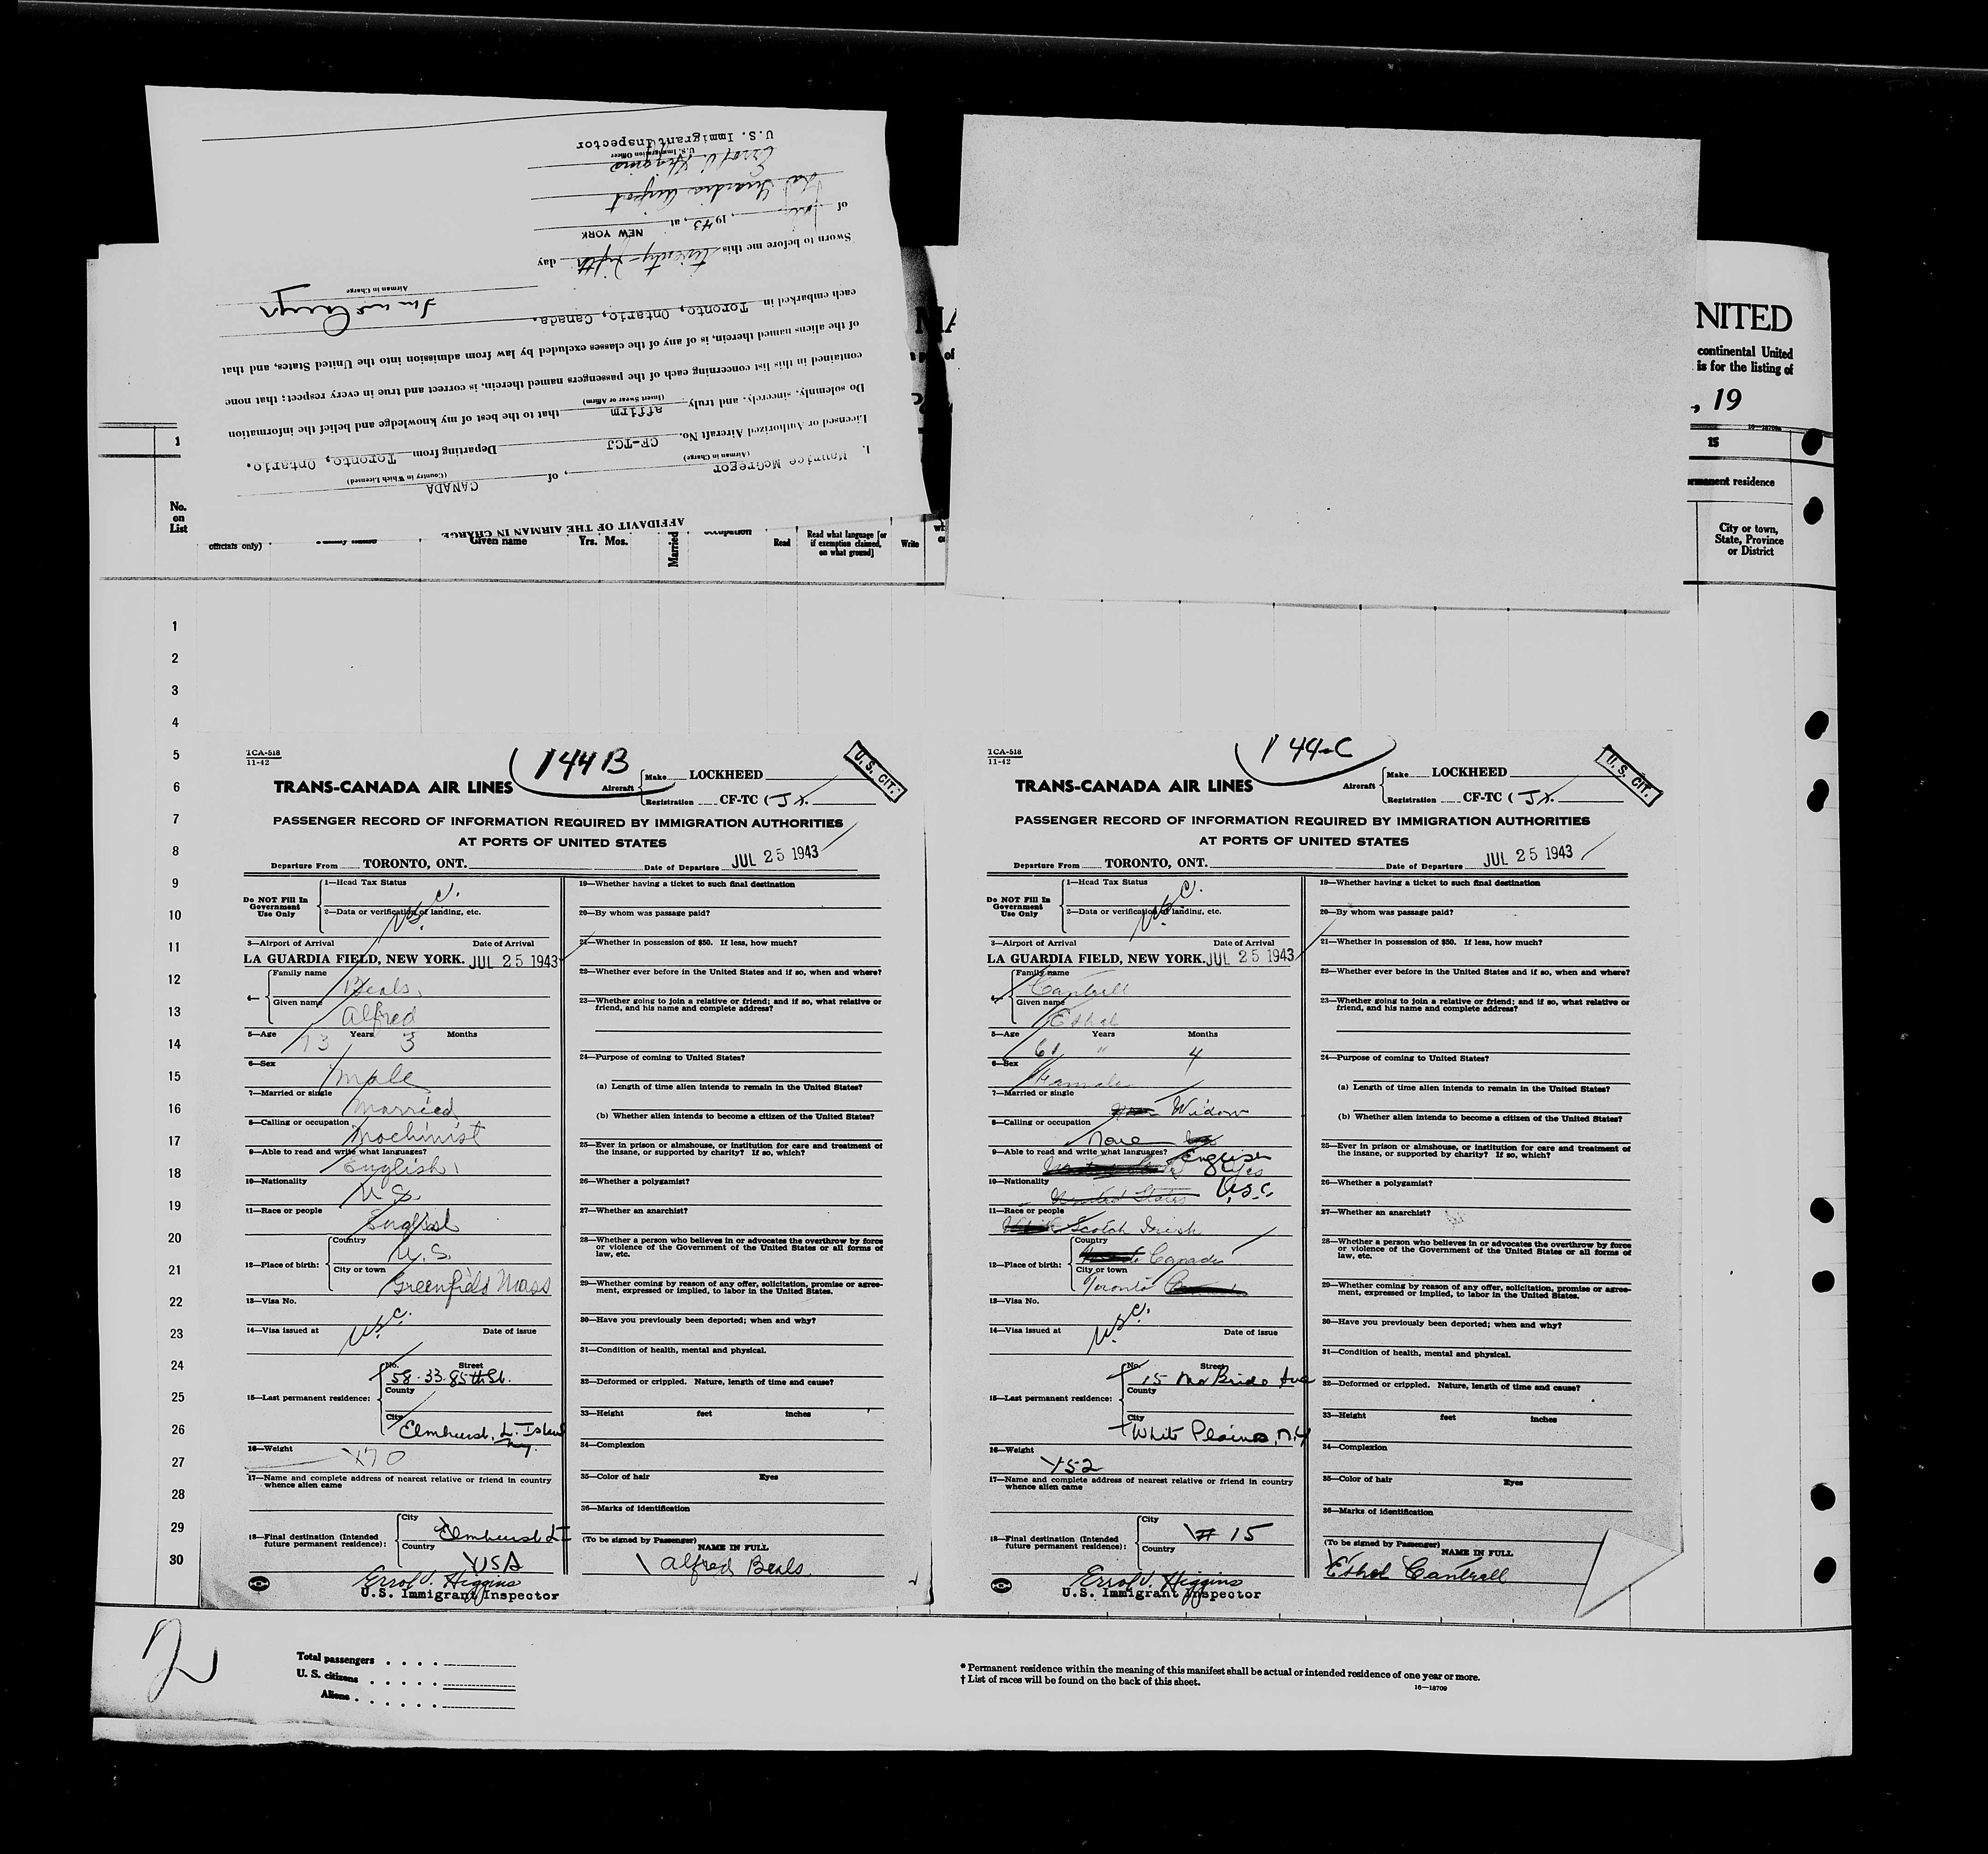 AFFIDAVIT OF THE AIRMAN IN CHARGE
I, Maurice McGregor, of CANADA
(Airman in Charge) (Country in Which Licensed)
Licensed or Authorized Aircraft No. CF-TCJ Departing from Toronto, Ontario,
Do solemnly, sincerely, and truly affirm that to the best of my knowledge and belief the information
(Insert Swear or Affirm)
contained in this list concerning each of the passengers named therein, is correct and true in every respect; that none
of the aliens named therein, is of any of the classes excluded by law from admission into the United States, and that
each embarked in Toronto, Ontario, Canada.
Airman in Charge
Sworn to before me this twenty-fifth day
of July, 1943, at NEW YORK
La Guardia Airport
Errol V. Higgins
U.S. Immigration Officer
U.S. Immigrant Inspector
NITED
continental United
is for the listing of
, 19
16—18709
1
15
permanent residence
No.
on
List
officials only)
Given name
Yrs. Mos.
Married
Read
Read what language [or
if exemption claimed,
on what ground]
Write
City or town,
State, Province
or District
1
2
3
4
5
6
7
8
9
10
11
12
13
14
15
16
17
18
19
20
21
22
23
24
25
26
27
28
29
30
TCA-518
11-42
144B
U. S. CIT.
TRANS-CANADA AIR LINES
Aircraft
Make LOCKHEED
Registration CF-TC (J).
PASSENGER RECORD OF INFORMATION REQUIRED BY IMMIGRATION AUTHORITIES
AT PORTS OF UNITED STATES
Departure From TORONTO, ONT. Date of Departure JUL 25 1943
Do NOT Fill In
Government
Use Only
1—Head Tax Status
2—Data or verification of landing, etc.
U.S.C.
3—Airport of Arrival Date of Arrival
LA GUARDIA FIELD, NEW YORK. JUL 25 1943
4—
Family name
Beals
Given name
Alfred
5—Age 73 Years 3 Months
6—Sex
Male
7—Married or single
Married
8—Calling or occupation
Mochinist
9—Able to read and write what languages?
English
10—Nationality
U.S.
11—Race or people
English
12—Place of birth:
Country
U.S.
City or town
Greenfield Mass
13—Visa No.
14—Visa issued at Date of issue
U.S.C.
15—Last permanent residence:
No. Street
58-33-85th St.
County
City
Elmhurst, L. Island
N.Y.
16—Weight
170
17—Name and complete address of nearest relative or friend in country
whence alien came
18—Final destination (Intended
future permanent residence):
City
Elmhurst LI
Country
USA
Errol V. Higgins
U.S. Immigrant Inspector
19—Whether having a ticket to such final destination
20—By whom was passage paid?
21—Whether in possession of $50. If less, how much?
22—Whether ever before in the United States and if so, when and where?
23—Whether going to join a relative or friend; and if so, what relative or
friend, and his name and complete address?
24—Purpose of coming to United States?
(a) Length of time alien intends to remain in the United States?
(b) Whether alien intends to become a citizen of the United States?
25—Ever in prison or almshouse, or institution for care and treatment of
the insane, or supported by charity? If so, which?
26—Whether a polygamist?
27—Whether an anarchist?
28—Whether a person who believes in or advocates the overthrow by force
or violence of the Government of the United States or all forms of
law, etc.
29—Whether coming by reason of any offer, solicitation, promise or agree-
ment, expressed or implied, to labor in the United States.
30—Have you previously been deported; when and why?
31—Condition of health, mental and physical.
32—Deformed or crippled. Nature, length of time and cause?
33—Height feet inches
34—Complexion
35—Color of hair Eyes
36—Marks of identification
(To be signed by Passenger)
NAME IN FULL
Alfred Beals
TCA-518
11-42
144-C
U. S. CIT.
TRANS-CANADA AIR LINES
Aircraft
Make LOCKHEED
Registration CF-TC (J).
PASSENGER RECORD OF INFORMATION REQUIRED BY IMMIGRATION AUTHORITIES
AT PORTS OF UNITED STATES
Departure From TORONTO, ONT. Date of Departure JUL 25 1943
Do NOT Fill In
Government
Use Only
1—Head Tax Status
2—Data or verification of landing, etc.
U.S.C.
3—Airport of Arrival Date of Arrival
LA GUARDIA FIELD, NEW YORK. JUL 25 1943
4—
Family name
Cantrell
Given name
Ethel
5—Age Years Months
61 " 4
6—Sex
Female
7—Married or single
Widow
8—Calling or occupation
None
9—Able to read and write what languages? English
Yes
10—Nationality
United States U.S.C.
11—Race or people
Scotch Irish
12—Place of birth:
Country
Canada
City or town
Toronto
13—Visa No.
14—Visa issued at Date of issue
U.S.C.
15—Last permanent residence:
No. Street
15 McBride Ave
County
City
White Plains, N.Y
16—Weight
152
17—Name and complete address of nearest relative or friend in country
whence alien came
18—Final destination (Intended
future permanent residence):
City
# 15
Country
Errol V. Higgins
U.S. Immigrant Inspector
19—Whether having a ticket to such final destination
20—By whom was passage paid?
21—Whether in possession of $50. If less, how much?
22—Whether ever before in the United States and if so, when and where?
23—Whether going to join a relative or friend; and if so, what relative or
friend, and his name and complete address?
24—Purpose of coming to United States?
(a) Length of time alien intends to remain in the United States?
(b) Whether alien intends to become a citizen of the United States?
25—Ever in prison or almshouse, or institution for care and treatment of
the insane, or supported by charity? If so, which?
26—Whether a polygamist?
27—Whether an anarchist?
28—Whether a person who believes in or advocates the overthrow by force
or violence of the Government of the United States or all forms of
law, etc.
29—Whether coming by reason of any offer, solicitation, promise or agree-
ment, expressed or implied, to labor in the United States.
30—Have you previously been deported; when and why?
31—Condition of health, mental and physical.
32—Deformed or crippled. Nature, length of time and cause?
33—Height feet inches
34—Complexion
35—Color of hair Eyes
36—Marks of identification
(To be signed by Passenger)
NAME IN FULL
Ethel Cantrell
2
Total passengers
U. S. citizens
Aliens
* Permanent residence within the meaning of this manifest shall be actual or intended residence of one year or more.
† List of races will be found on the back of this sheet.
16—18709